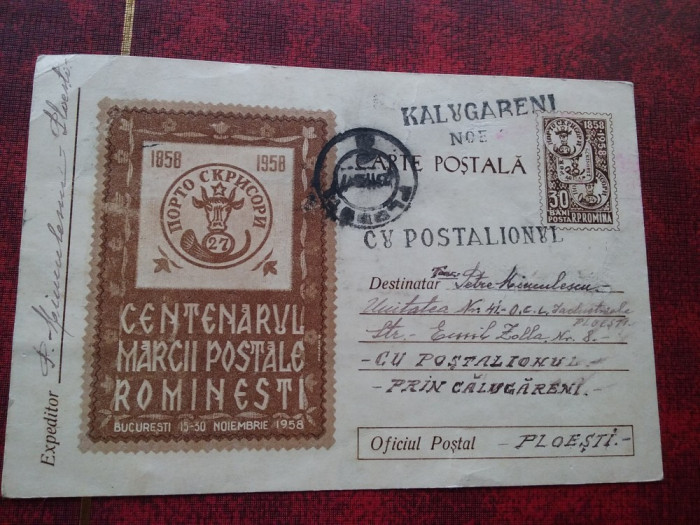 Expeditor P. Minulescu - Ploești
1858 1958
ПОРТО СКРИСОРИ
27
CENTENARUL
MĂRCII POSTALE
ROMINEȘTI
BUCUREȘTI 15-30 NOIEMBRIE 1958
KALUGARENI
NOE
CARTE POȘTALĂ
1858 1958
30
BANI
POSTA R.P.ROMINA
CU POSTALIONUL
Destinatar Petre Minulescu.-
Unitatea Nr. 41-O.C.L. Industriale
PLOEȘTI
Str. Emil Zolla Nr. 8.-
-CU POȘTALIONUL-
-PRIN CĂLUGĂRENI.-
Oficiul Poștal -PLOEȘTI.-